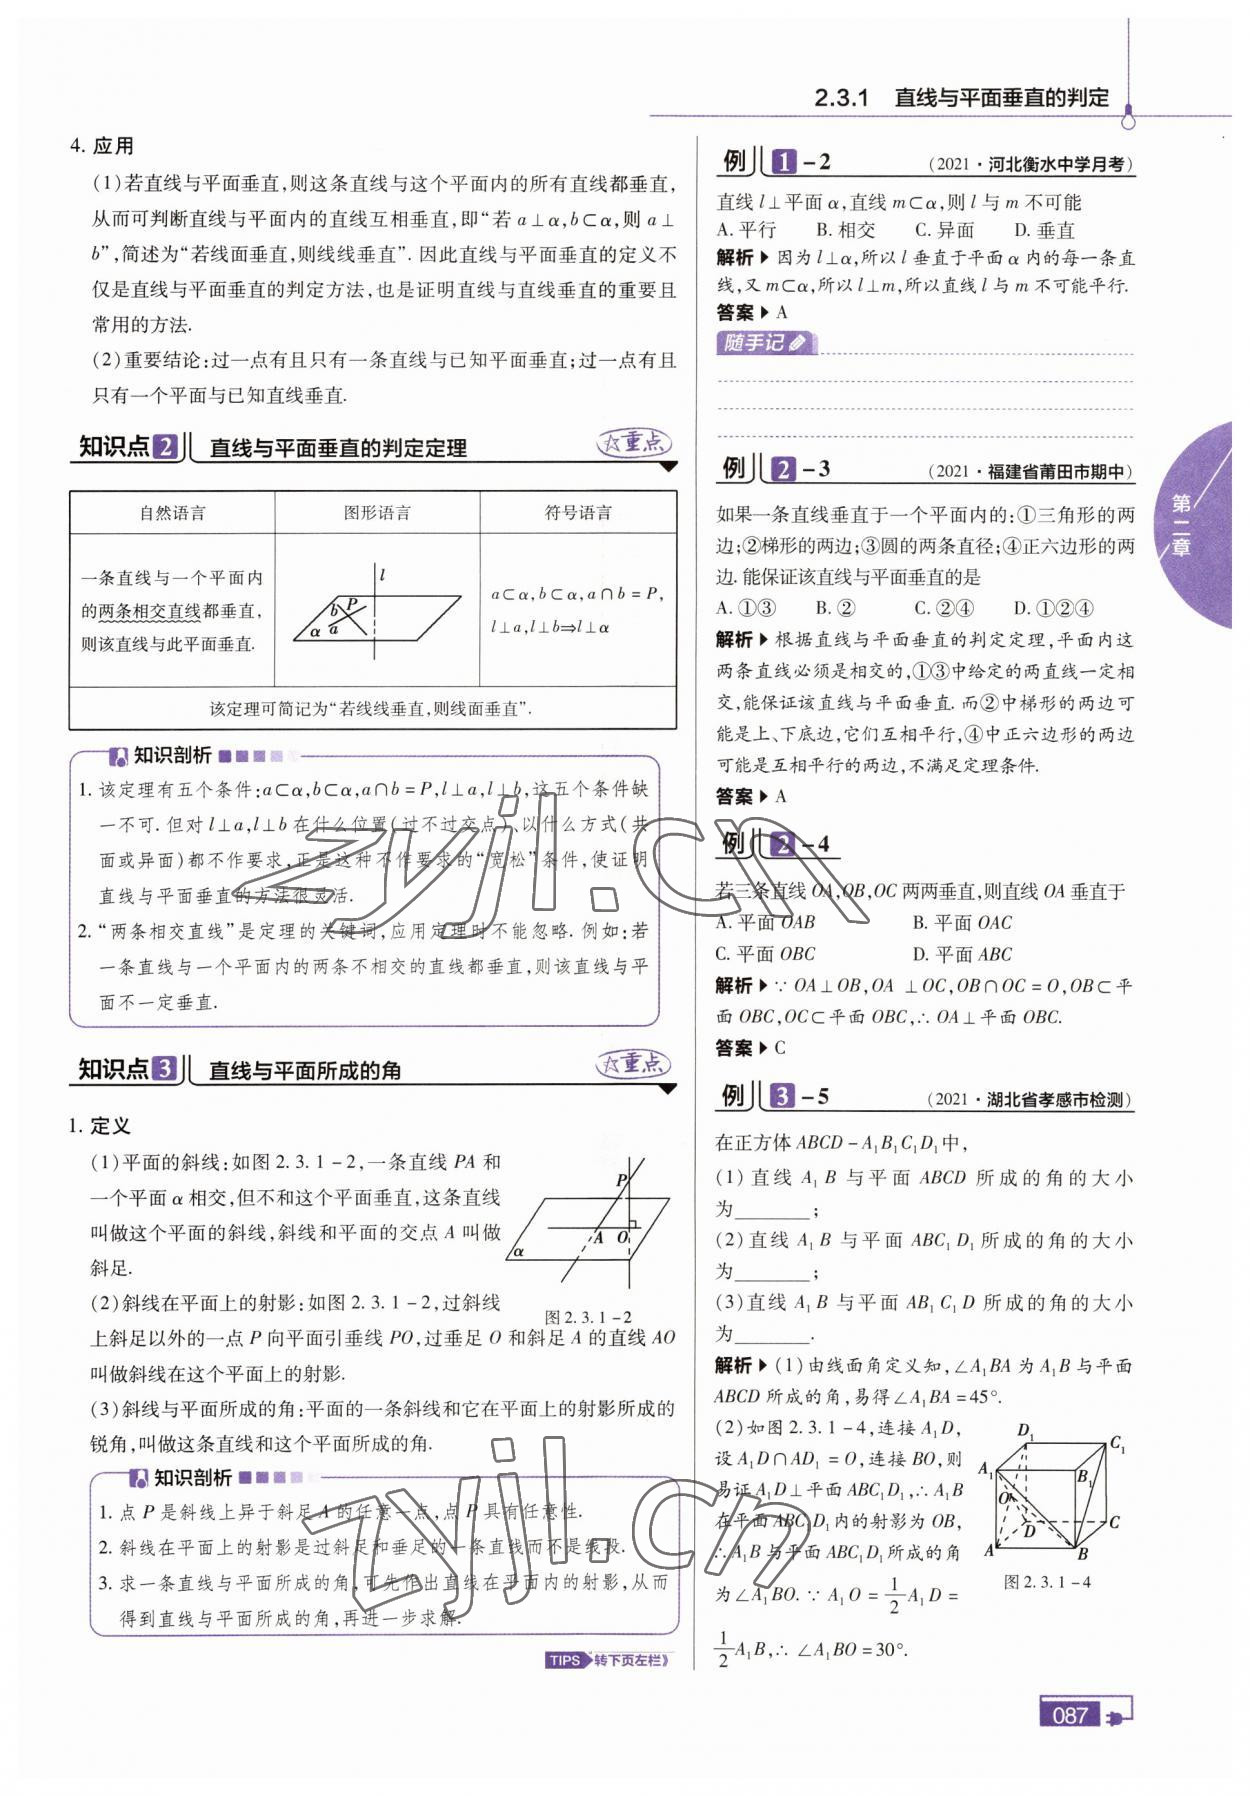 2.3.1 直线与平面垂直的判定
4. 应用
(1)若直线与平面垂直,则这条直线与这个平面内的所有直线都垂直,
从而可判断直线与平面内的直线互相垂直,即“若 a⊥α,b⊂α,则 a⊥
b”,简述为“若线面垂直,则线线垂直”. 因此直线与平面垂直的定义不
仅是直线与平面垂直的判定方法,也是证明直线与直线垂直的重要且
常用的方法.
(2)重要结论:过一点有且只有一条直线与已知平面垂直;过一点有且
只有一个平面与已知直线垂直.
知识点2 直线与平面垂直的判定定理 ☆重点
自然语言 图形语言 符号语言
一条直线与一个平面内
的两条相交直线都垂直,
则该直线与此平面垂直.
l
b P
α a
a⊂α,b⊂α,a∩b=P,
l⊥a,l⊥b⇒l⊥α
该定理可简记为“若线线垂直,则线面垂直”.
知识剖析
1. 该定理有五个条件:a⊂α,b⊂α,a∩b=P,l⊥a,l⊥b,这五个条件缺
一不可. 但对 l⊥a,l⊥b 在什么位置(过不过交点)、以什么方式(共
面或异面)都不作要求,正是这种不作要求的“宽松”条件,使证明
直线与平面垂直的方法很灵活.
2. “两条相交直线”是定理的关键词,应用定理时不能忽略. 例如:若
一条直线与一个平面内的两条不相交的直线都垂直,则该直线与平
面不一定垂直.
知识点3 直线与平面所成的角 ☆重点
1. 定义
(1)平面的斜线:如图 2.3.1-2,一条直线 PA 和
一个平面 α 相交,但不和这个平面垂直,这条直线
叫做这个平面的斜线,斜线和平面的交点 A 叫做
斜足.
P
A O
α
图 2.3.1-2
(2)斜线在平面上的射影:如图 2.3.1-2,过斜线
上斜足以外的一点 P 向平面引垂线 PO,过垂足 O 和斜足 A 的直线 AO
叫做斜线在这个平面上的射影.
(3)斜线与平面所成的角:平面的一条斜线和它在平面上的射影所成的
锐角,叫做这条直线和这个平面所成的角.
知识剖析
1. 点 P 是斜线上异于斜足 A 的任意一点,点 P 具有任意性.
2. 斜线在平面上的射影是过斜足和垂足的一条直线而不是线段.
3. 求一条直线与平面所成的角,可先作出直线在平面内的射影,从而
得到直线与平面所成的角,再进一步求解.
TIPS 转下页左栏》
例1-2 (2021·河北衡水中学月考)
直线 l⊥平面 α,直线 m⊂α,则 l 与 m 不可能
A. 平行 B. 相交 C. 异面 D. 垂直
解析▶因为 l⊥α,所以 l 垂直于平面 α 内的每一条直
线,又 m⊂α,所以 l⊥m,所以直线 l 与 m 不可能平行.
答案▶A
随手记
例2-3 (2021·福建省莆田市期中)
如果一条直线垂直于一个平面内的:①三角形的两
边;②梯形的两边;③圆的两条直径;④正六边形的两
边. 能保证该直线与平面垂直的是
A. ①③ B. ② C. ②④ D. ①②④
解析▶根据直线与平面垂直的判定定理,平面内这
两条直线必须是相交的,①③中给定的两直线一定相
交,能保证该直线与平面垂直. 而②中梯形的两边可
能是上、下底边,它们互相平行,④中正六边形的两边
可能是互相平行的两边,不满足定理条件.
答案▶A
例2-4
若三条直线 OA,OB,OC 两两垂直,则直线 OA 垂直于
A. 平面 OAB B. 平面 OAC
C. 平面 OBC D. 平面 ABC
解析▶∵ OA⊥OB,OA ⊥OC,OB∩OC=O,OB⊂平
面 OBC,OC⊂平面 OBC,∴ OA⊥平面 OBC.
答案▶C
例3-5 (2021·湖北省孝感市检测)
在正方体 ABCD-A₁B₁C₁D₁中,
(1)直线 A₁B 与平面 ABCD 所成的角的大小
为________;
(2)直线 A₁B 与平面 ABC₁D₁所成的角的大小
为________;
(3)直线 A₁B 与平面 AB₁C₁D 所成的角的大小
为________.
解析▶(1)由线面角定义知,∠A₁BA 为 A₁B 与平面
ABCD 所成的角,易得∠A₁BA=45°.
(2)如图 2.3.1-4,连接 A₁D,
设 A₁D∩AD₁=O,连接 BO,则
易证 A₁D⊥平面 ABC₁D₁,∴A₁B
在平面 ABC₁D₁内的射影为 OB,
∴A₁B 与平面 ABC₁D₁所成的角
为∠A₁BO. ∵ A₁O=1/2A₁D=
1/2A₁B,∴ ∠A₁BO=30°.
D₁ C₁
A₁ B₁
O
D C
A B
图 2.3.1-4
第二章
087
zyjl.cn
zyjl.cn